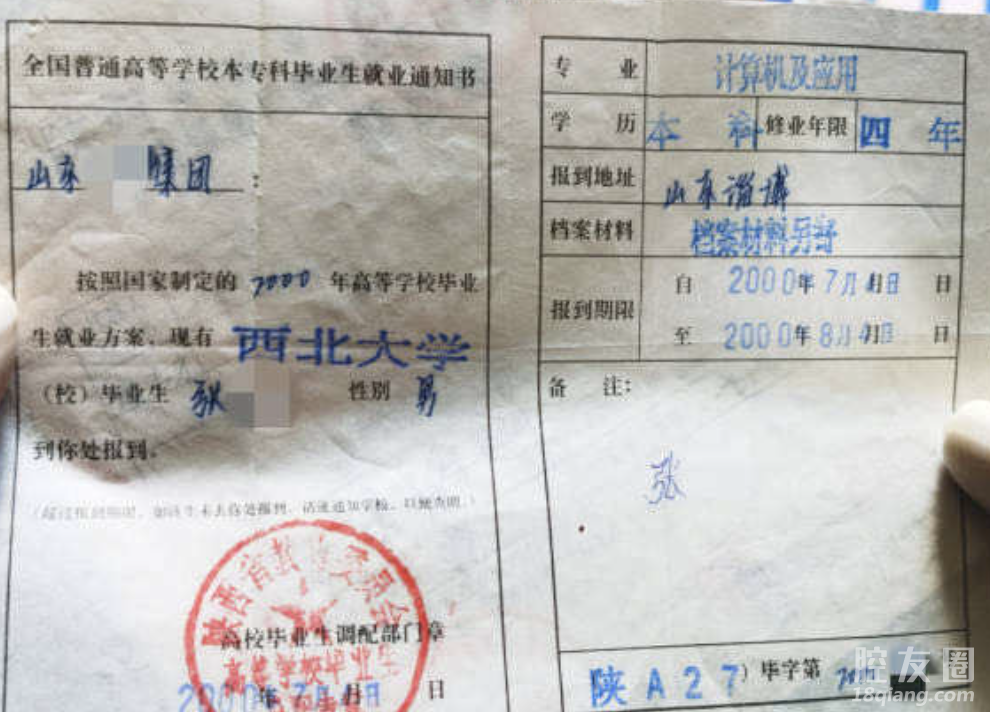 全国普通高等学校本专科毕业生就业通知书
山东 集团：
按照国家制定的 2000 年高等学校毕业
生就业方案，现有 西北大学
（校）毕业生 张 性别 男
到你处报到。
陕西省教育委员会
高校毕业生调配部门章
高等学校毕业生
2000年7月1日 日
专业 计算机及应用
学历 本科 修业年限 四年
报到地址 山东淄博
档案材料 档案材料另寄
报到期限 自 2000年7月1日 日
至 2000年8月1日 日
备注：
张
陕A27）毕字第
腔友圈
18qiang.com